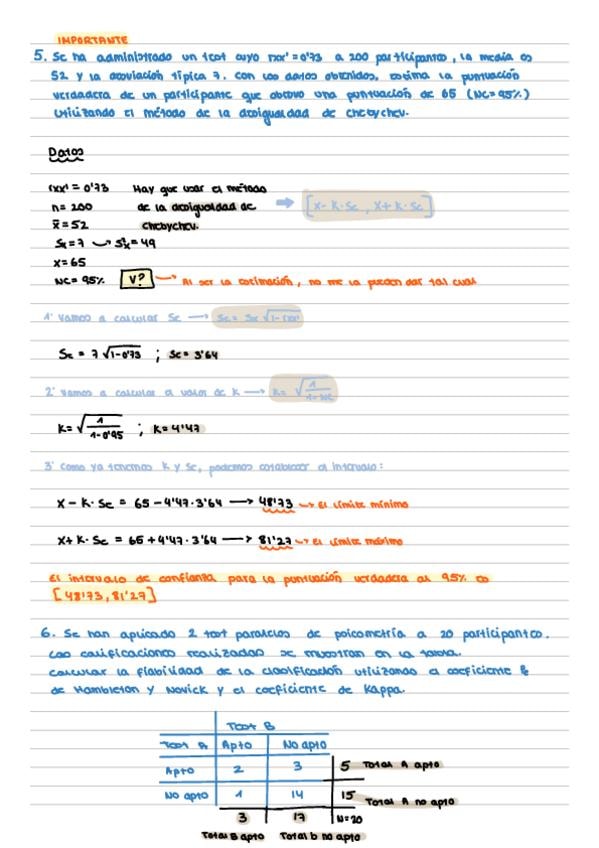 IMPORTANTE
5. Se ha administrado un test cuyo rxx' = 0'73 a 200 participantes, la media es
52 y la desviación típica 7. con los datos obtenidos, estima la puntuación
verdadera de un participante que obtuvo una puntuación de 65 (NC = 95%)
utilizando el método de la desigualdad de chebychev.
Datos
rxx' = 0'73 Hay que usar el método
n = 200 de la desigualdad de → [X - K · Se , X + K · Se]
x̄ = 52 chebychev.
Sx = 7 → S²x = 49
X = 65
NC = 95% V? → Al ser la estimación, no me la pueden dar tal cual
1º Vamos a calcular Se → Se = Sx √1-rxx'
Se = 7 √1-0'73 ; Se = 3'64
2º Vamos a calcular el valor de K → K = √1/1-NC
K = √1/1-0'95 ; K = 4'47
3º Como ya tenemos K y Se, podemos establecer el intervalo:
X - K · Se = 65 - 4'47 · 3'64 → 48'73 → El límite mínimo
X + K · Se = 65 + 4'47 · 3'64 → 81'27 → El límite máximo
El intervalo de confianza para la puntuación verdadera al 95% es
[48'73, 81'27]
6. Se han aplicado 2 test paralelos de psicometría a 20 participantes.
Las calificaciones realizadas se muestran en la tabla.
Calcular la fiabilidad de la clasificación utilizando el coeficiente
de Hambleton y Novick y el coeficiente de Kappa.
Test B
Test A Apto No apto
Apto 2 3 5 Total A apto
No apto 1 14 15 Total A no apto
3 17 N=20
Total B apto Total b no apto